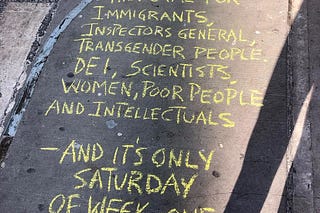 THEY CAME FOR
IMMIGRANTS,
INSPECTORS GENERAL,
TRANSGENDER PEOPLE.
DEI, SCIENTISTS,
WOMEN, POOR PEOPLE
AND INTELLECTUALS
— AND IT'S ONLY
SATURDAY
OF WEEK ONE